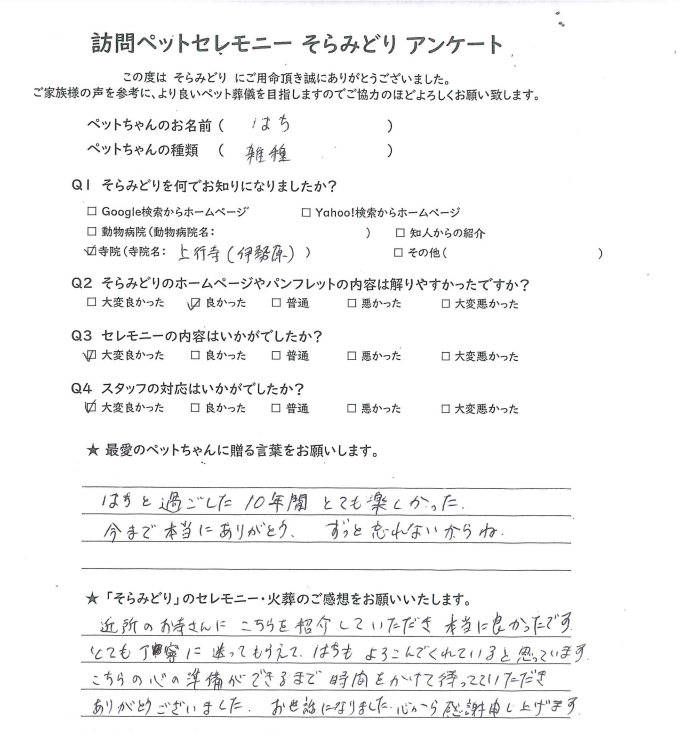 訪問ペットセレモニー そらみどり アンケート
この度は そらみどり にご用命頂き誠にありがとうございました。
ご家族様の声を参考に、より良いペット葬儀を目指しますのでご協力のほどよろしくお願い致します。
ペットちゃんのお名前 ( はち )
ペットちゃんの種類 ( 雑種 )
Q1 そらみどりを何でお知りになりましたか?
□ Google検索からホームページ □ Yahoo!検索からホームページ
□ 動物病院(動物病院名: ) □ 知人からの紹介
☑ 寺院(寺院名: 上行寺(伊勢原) ) □ その他( )
Q2 そらみどりのホームページやパンフレットの内容は解りやすかったですか?
□ 大変良かった ☑ 良かった □ 普通 □ 悪かった □ 大変悪かった
Q3 セレモニーの内容はいかがでしたか?
☑ 大変良かった □ 良かった □ 普通 □ 悪かった □ 大変悪かった
Q4 スタッフの対応はいかがでしたか?
☑ 大変良かった □ 良かった □ 普通 □ 悪かった □ 大変悪かった
★ 最愛のペットちゃんに贈る言葉をお願いします。
はちと過ごした10年間とても楽しかった.
今まで本当にありがとう、ずっと忘れないからね.
★「そらみどり」のセレモニー・火葬のご感想をお願いいたします。
近所のお寺さんにこちらを紹介していただき本当に良かったです.
とても丁寧に送ってもらえて、はちもよろこんでくれていると思っています.
こちらの心の準備ができるまで時間をかけて待っていただき
ありがとうございました. お世話になりました. 心から感謝申し上げます.